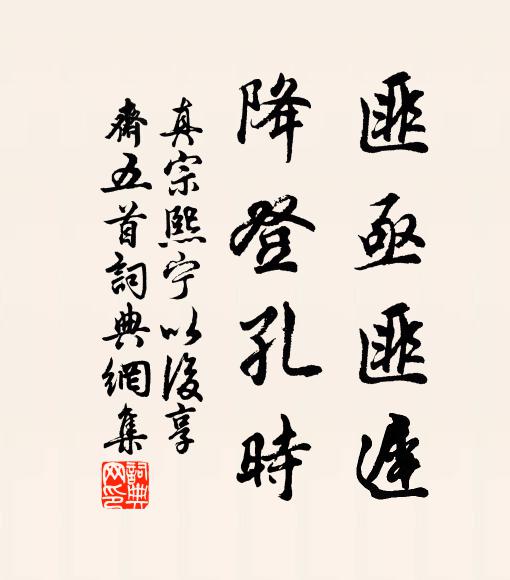 匪亟匪遲
降登孔時
真宗熙宁以後享
齋五首詞典網集
詞典网印